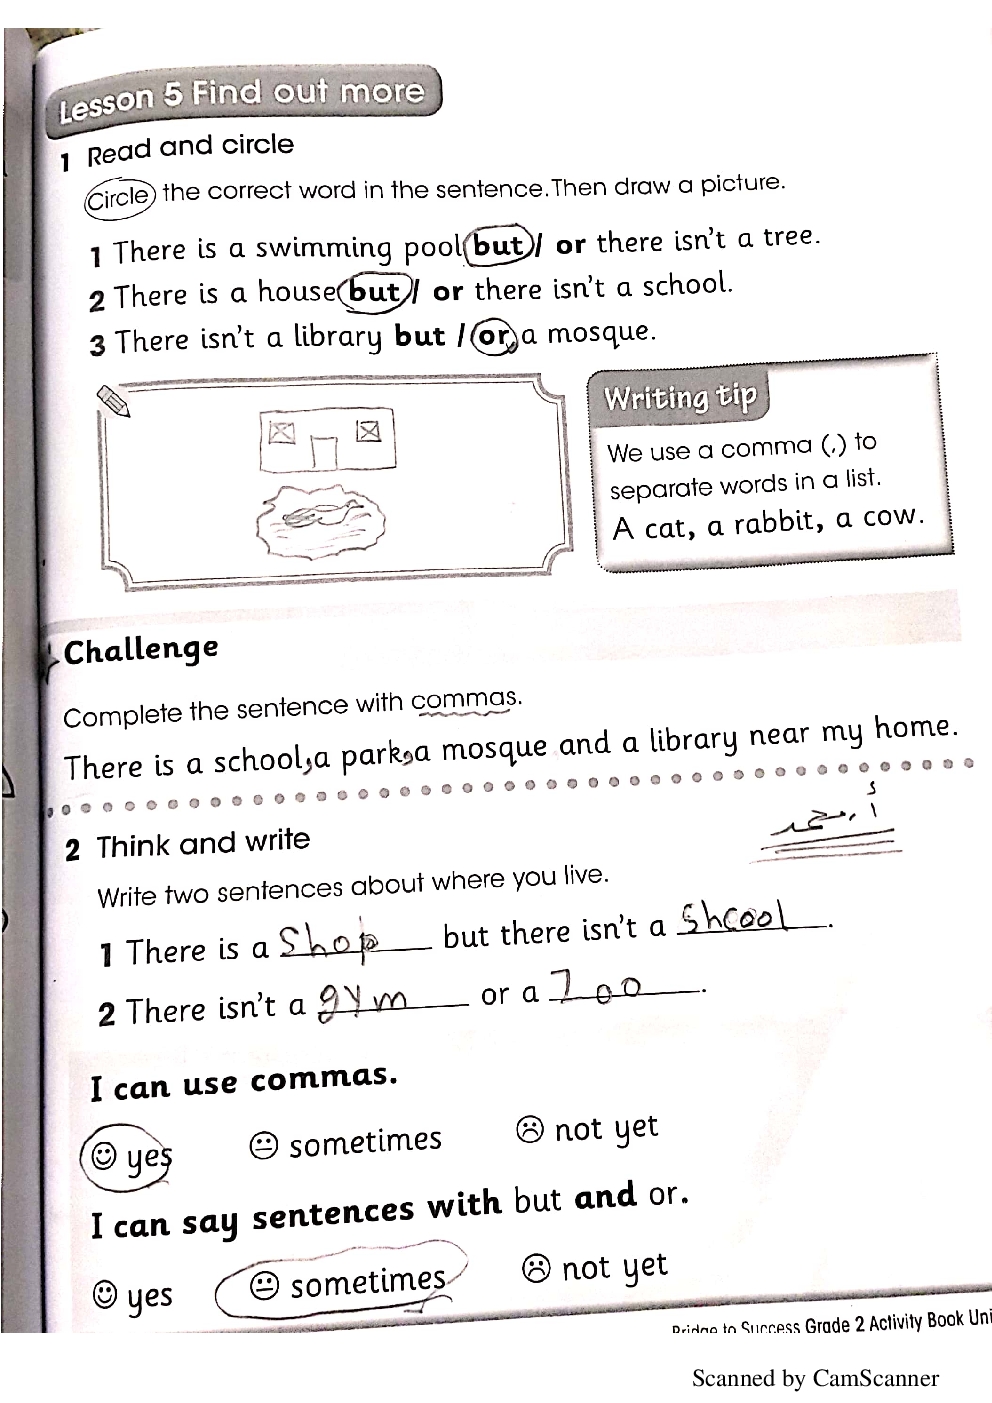 Lesson 5 Find out more
1 Read and circle
Circle the correct word in the sentence. Then draw a picture.
1 There is a swimming pool but / or there isn't a tree.
2 There is a house but / or there isn't a school.
3 There isn't a library but / or a mosque.
Writing tip
We use a comma (,) to
separate words in a list.
A cat, a rabbit, a cow.
Challenge
Complete the sentence with commas.
There is a school, a park, a mosque and a library near my home.
أ. محمد
2 Think and write
Write two sentences about where you live.
1 There is a Shop but there isn't a Shcool.
2 There isn't a gym or a Zoo.
I can use commas.
yes sometimes not yet
I can say sentences with but and or.
yes sometimes not yet
Bridge to Success Grade 2 Activity Book Uni
Scanned by CamScanner